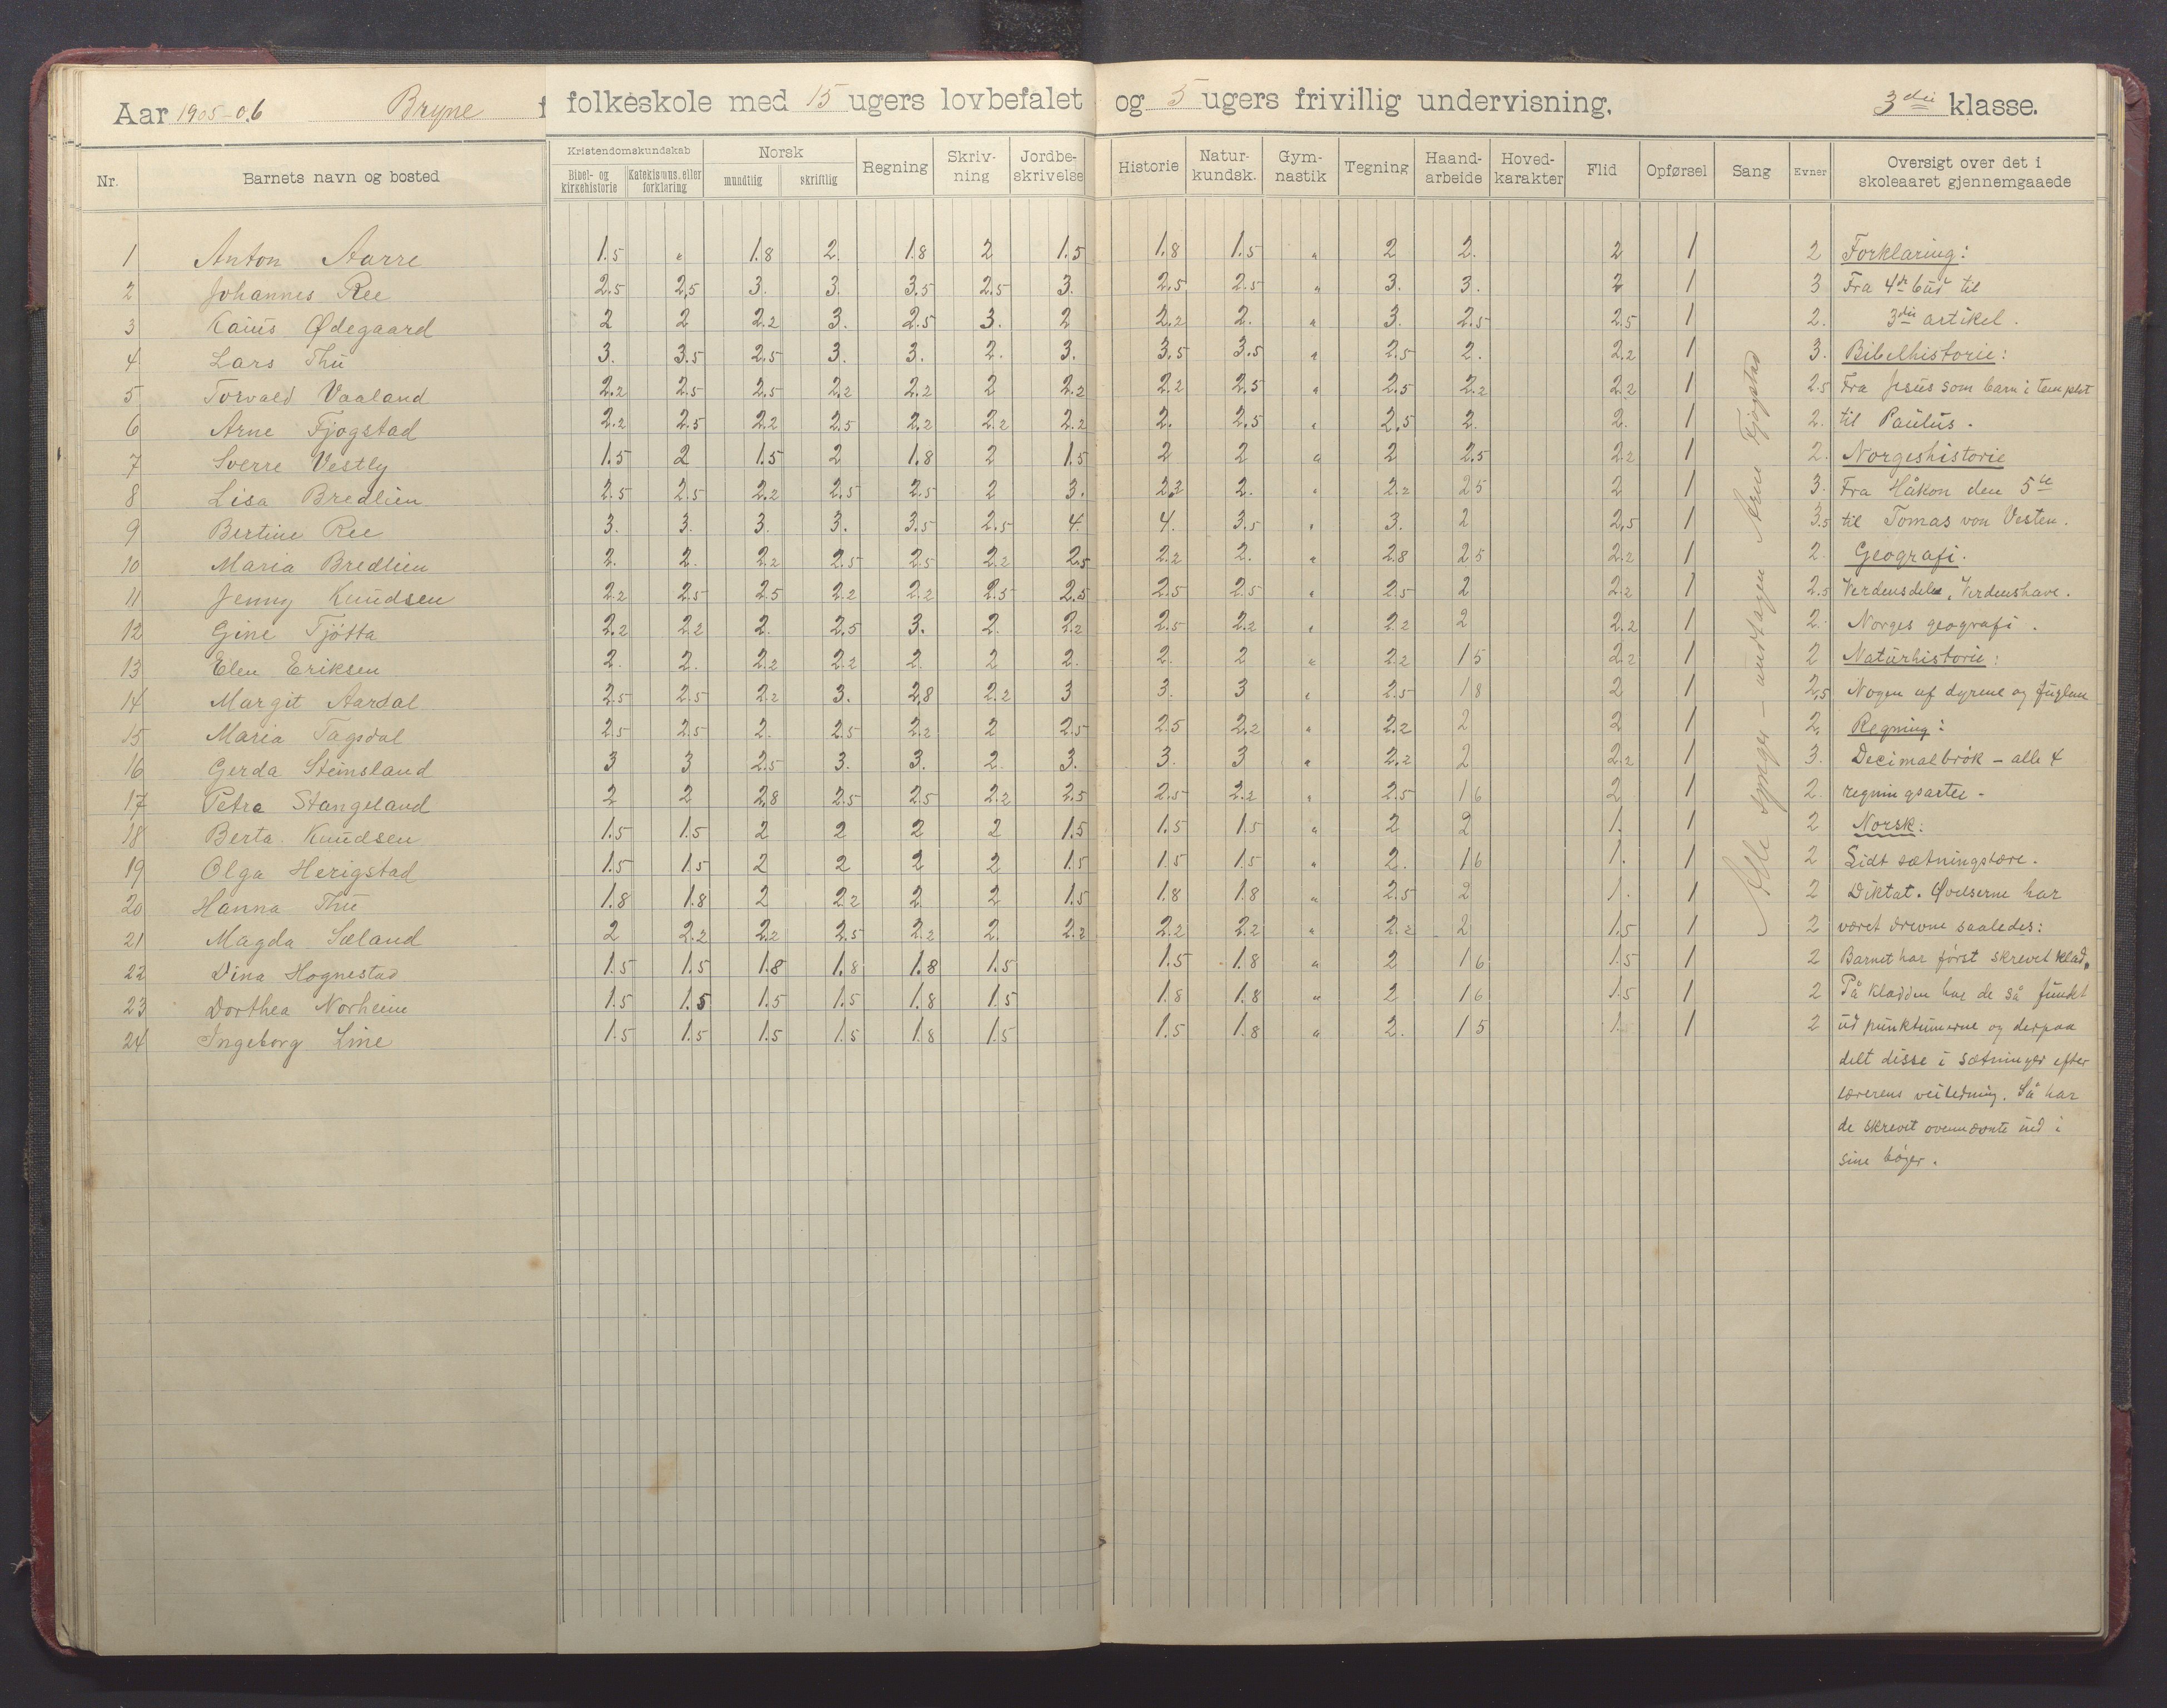 Aar 1905-06 Bryne folkeskole med 15 ugers lovbefalet og 5 ugers frivillig undervisning. 3die klasse.
Nr. Barnets navn og bosted Kristendomskundskab Bibel- og kirkehistorie Katekismus. eller forklaring Norsk mundtlig skriftlig Regning Skriv-ning Jordbe-skrivelse Historie Natur-kundsk. Gym-nastik Tegning Haand-arbeide Hoved-karakter Flid Opførsel Sang Evner Oversigt over det i skoleaaret gjennemgaaede
1 Anton Aarre 1.5 " 1.8 2. 1.8 2 1.5 1.8 1.5 " 2 2. 2 1 2 Forklaring:
2 Johannes Ree 2.5 2.5 3. 3. 3.5 2.5 3. 2.5 2.5 " 3. 3. 2 1 3 Fra 4de bud til
3 Kaius Ødegaard 2 2 2.2 3. 2.5 3. 2 2.2 2. " 3. 2.5 2.5 1 2. 3die artikel.
4 Lars Thu 3. 3.5 2.5 3. 3. 2. 3. 3.5 3.5 " 2.5 2. 2.2 1 3. Bibelhistorie:
5 Torvald Vaaland 2.2 2.5 2.5 2.2 2.2 2 2.2 2.2 2.5 " 2.5 2.2 2.2 1 2.5 Fra Jesus som barn i templet
6 Arne Fjogstad 2.2 2.5 2.2 2.5 2.2 2.2 2.2 2. 2.5 " 2.5 2. 2. 1 2. til Paulus.
7 Sverre Vestly 1.5 2 1.5 2 1.8 2 1.5 2 2 " 2 2.5 2.2 1 2. Norgeshistorie
8 Lisa Bredlien 2.5 2.5 2.2 2.5 2.5 2 3. 2.2 2. " 2.2 25 2 1 3. Fra Håkon den 5te
9 Bertine Ree 3. 3. 3. 3. 3.5 2.5 4 4. 3.5 " 3. 2 2.5 1 3.5 til Tomas von Vesten.
10 Maria Bredlien 2. 2. 2.2 2.5 2.5 2.2 2.5 2.2 2. " 2.8 25 2.2 1 2. Geografi.
11 Jenny Knudsen 2.2 2.5 2.5 2.2 2.2 2.5 2.5 2.5 2.5 " 2.5 2 2.2 1 2.5 Verdensdele, Verdenshave.
12 Gine Tjøtta 2.2 2.2 2. 2.5 3. 2. 2.2 2.5 2.2 " 2.2 2 2.2 1 2. Norges geografi.
13 Elen Eriksen 2. 2. 2.2 2.2 2. 2 2. 2. 2 " 2.2 15 2.2 1 2 Naturhistorie:
14 Margit Aardal 2.5 2.5 2.2 3. 2.8 2.2 3 3. 3 " 2.5 18 2 1 2.5 Nogen af dyrene og fuglene
15 Maria Tagsdal 2.5 2.5 2. 2.5 2.2 2 2.5 2.5 2.2 " 2.2 2 2 1 2. Regning:
16 Gerda Steinsland 3 3 2.5 3. 3. 2. 3. 3. 3 " 2.2 2 2.2 1 3. Decimalbrøk - alle 4
17 Petra Stangeland 2 2 2.8 2.5 2.5 2.2 2.5 2.5 2.2 " 2.5 16 2 1 2. regningsarter.
18 Berta Knudsen 1.5 1.5 2 2 2 2 1.5 1.5 1.5 " 2 2 1. 1 2 Norsk:
19 Olga Herigstad 1.5 1.5 2 2 2 2 1.5 1.5 1.5 " 2. 16 1. 1 2 Lidt sætningslære.
20 Hanna Thu 1.8 1.8 2 2.2 2 2 1.5 1.8 1.8 " 2.5 2 1. 1 2 Diktat. Øvelserne har
21 Magda Sæland 2 2.2 2.2 2.5 2.2 2. 2.2 2.2 2.2 " 2.2 2 1.5 1 2 været drevne saaledes:
22 Dina Hognestad 1.5 1.5 1.8 1.8 1.8 1.5 1.5 1.8 " 2 16 1.5 1 2 Barnet har først skrevet klad.
23 Dorthea Norheim 1.5 1.5 1.5 1.5 1.8 1.5 1.8 1.8 " 2 16 1.5 1 2 På kladden har de så fundet
24 Ingeborg Line 1.5 1.5 1.5 1.5 1.8 1.5 1.5 1.8 " 2. 15 1. 1 2 ud punktumerne og derpaa
delt disse i sætninger efter
lærerens veiledning. Så har
de skrevet ovennævnte ind i
sine bøger.
Alle synger - undtagen Arne Fjogstad